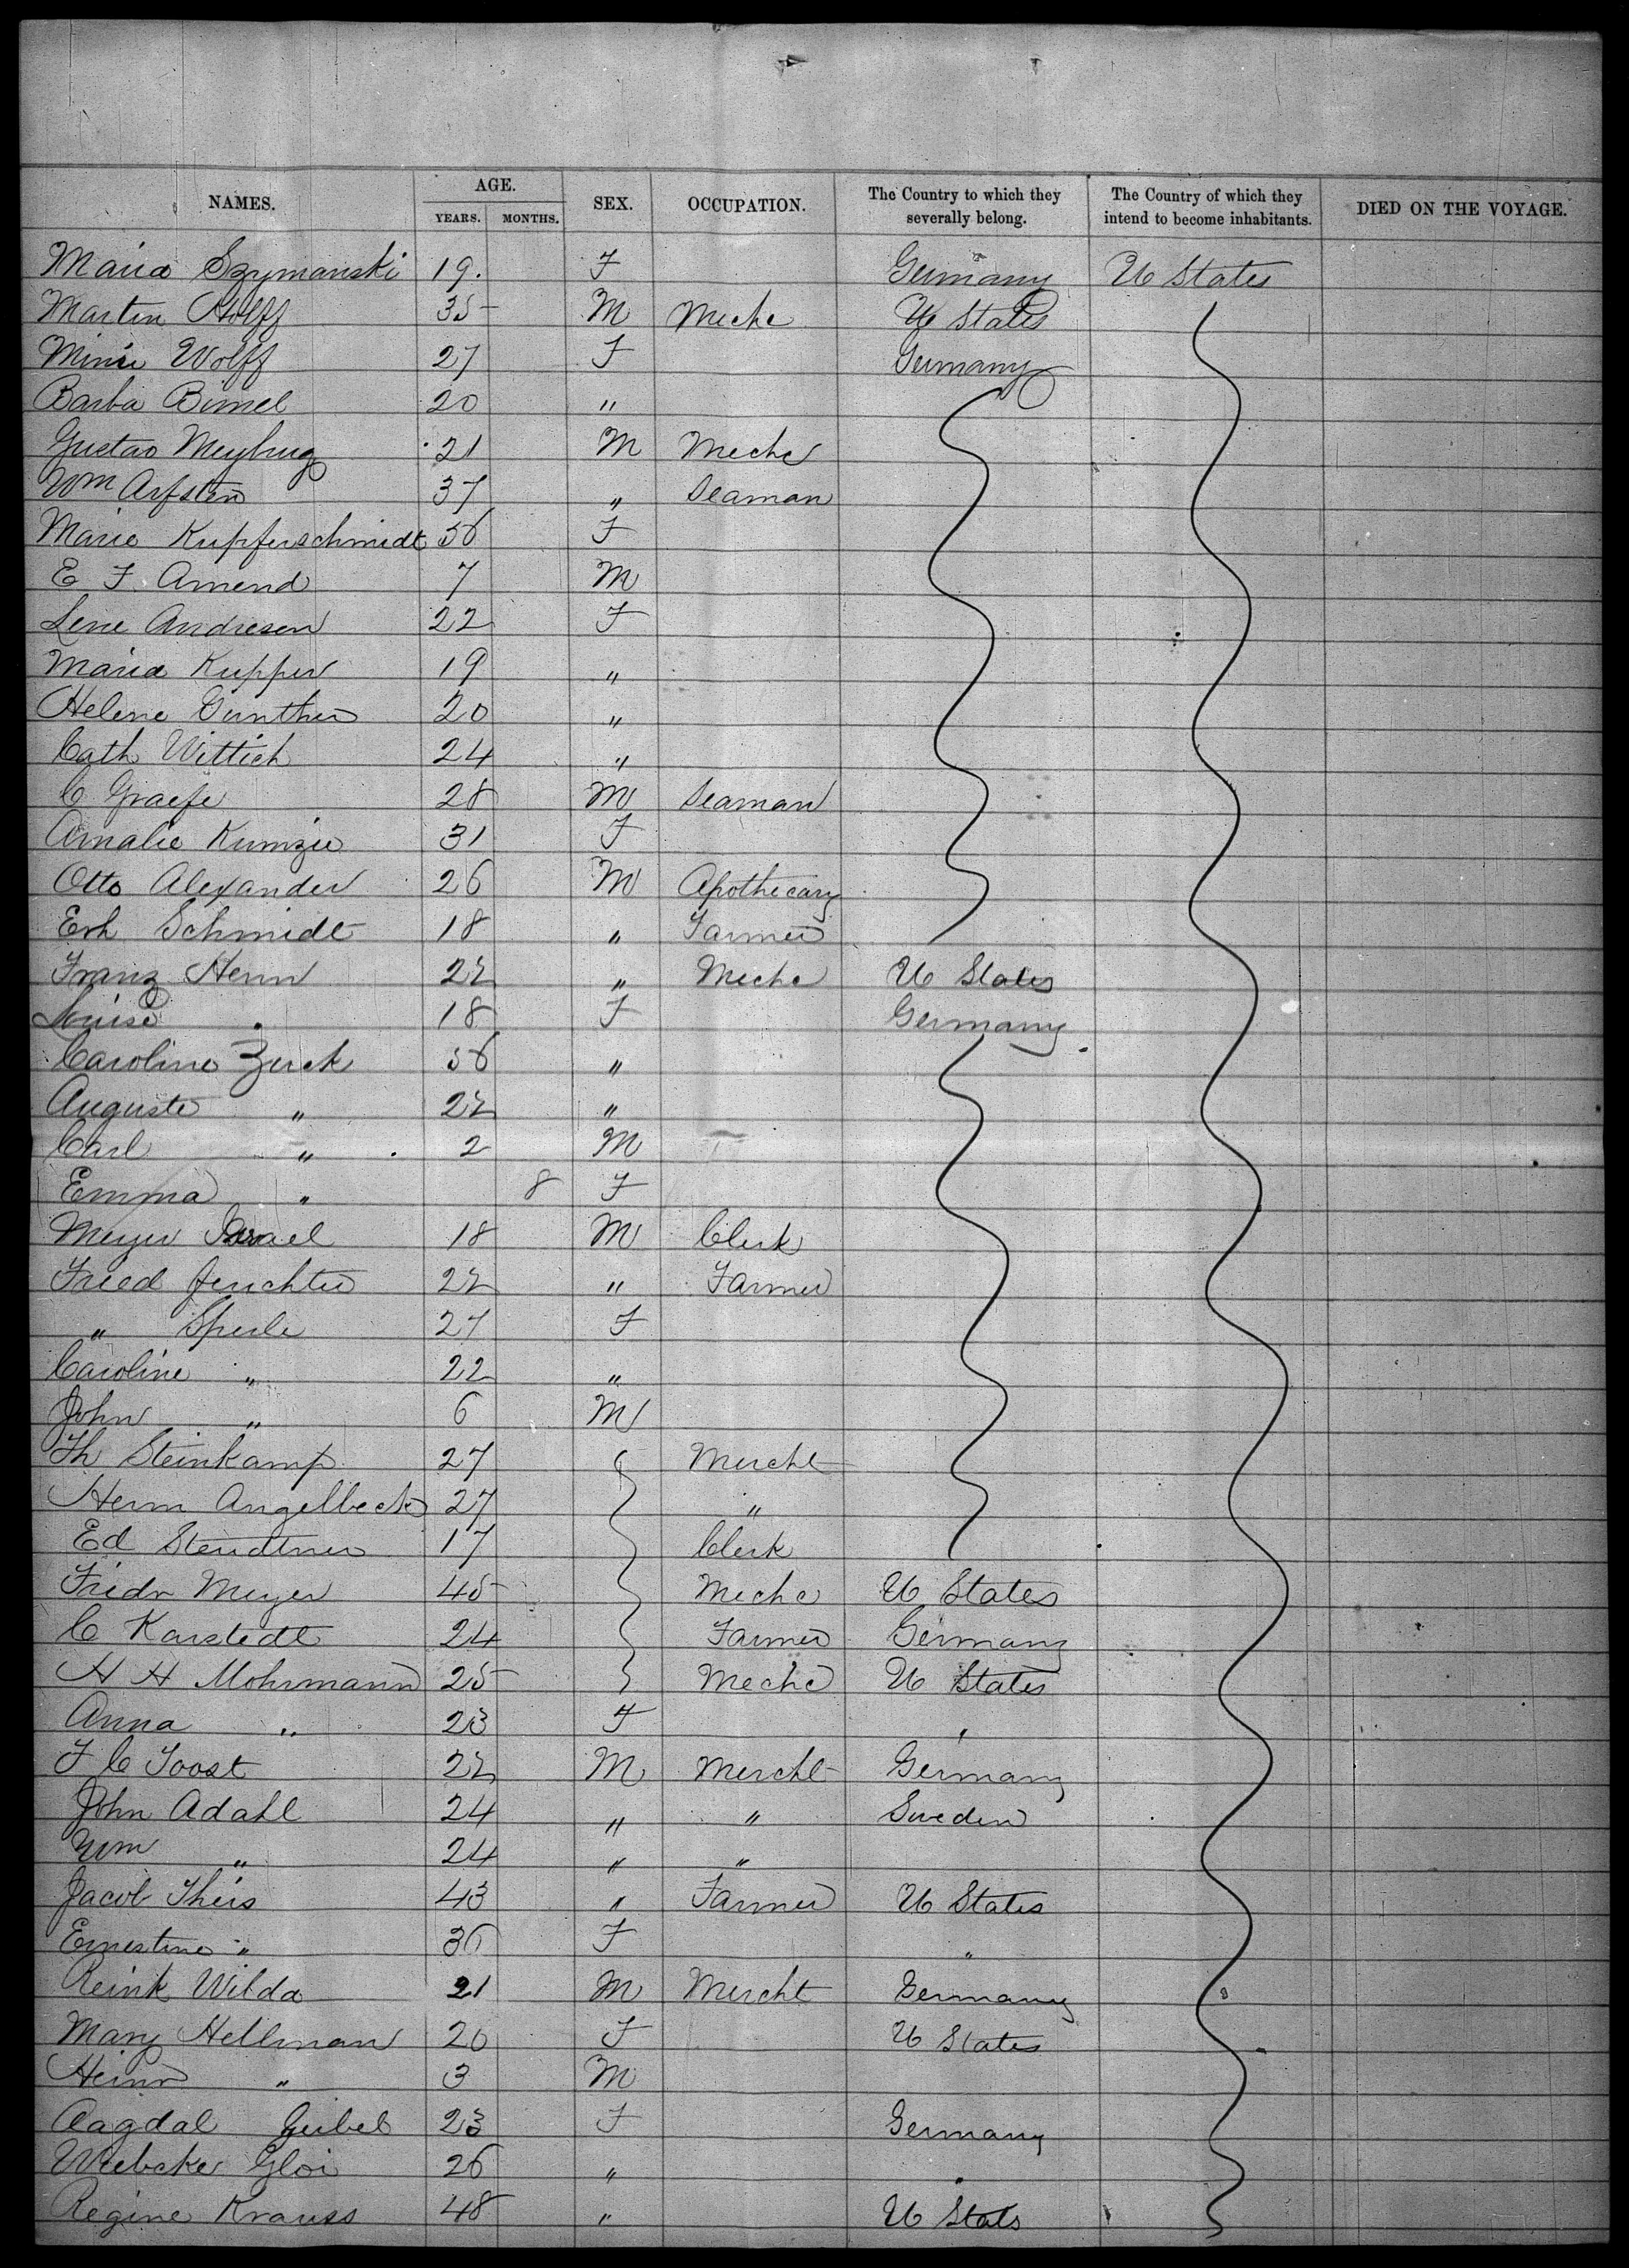 NAMES. AGE. SEX. OCCUPATION. The Country to which they severally belong. The Country of which they intend to become inhabitants. DIED ON THE VOYAGE.
YEARS. MONTHS.
Maria Szymanski 19. F Germany U States
Martin Wolff 35 M Mechc U States
Minie Wolff 27 F Germany
Barba Bimel 20 "
Gustav Meyburg 21 M Mechc
Wm Arfsten 37 " Seaman
Marie Kupferschmidt 56 F
E F. Amend 7 M
Line Andresen 22 F
Maria Kupper 19 "
Helene Gunther 20 "
Cath Wittich 24 "
C Graefe 28 M Seaman
Amalie Kumzie 31 F
Otto Alexander 26 M Apothecary
Erh Schmidt 18 " Farmer
Franz Henn 22 " Mechc U States
Louise " 18 F Germany
Caroline Zuck 56 "
Auguste " 22 "
Carl " 2 M
Emma " 8 F
Meyer Israel 18 M Clerk
Fried 22 " Farmer
" Sperle 27 F
Caroline " 22 "
John " 6 M
Th Steinkamp 27 Mercht
Herm Angelbeck 27 "
Ed Steudtner 17 Clerk
Friedr Meyer 45 Mechc U States
C Karstedt 24 Farmer Germany
H H Mohrmann 25 Mechc U States
Anna " 23 F "
F C Joost 22 M Mercht Germany
John Adahl 24 " " Sweden
Wm " 24 " "
Jacob Theis 43 " Farmer U States
Ernestine " 36 F "
Reink Wilda 21 M Mercht Germany
Mary Hellman 20 F U States
Heinr " 3 M
Aagdal Geibel 23 F Germany
Wiebcke Gloi 26 " "
Regine Krauss 48 " U Stats